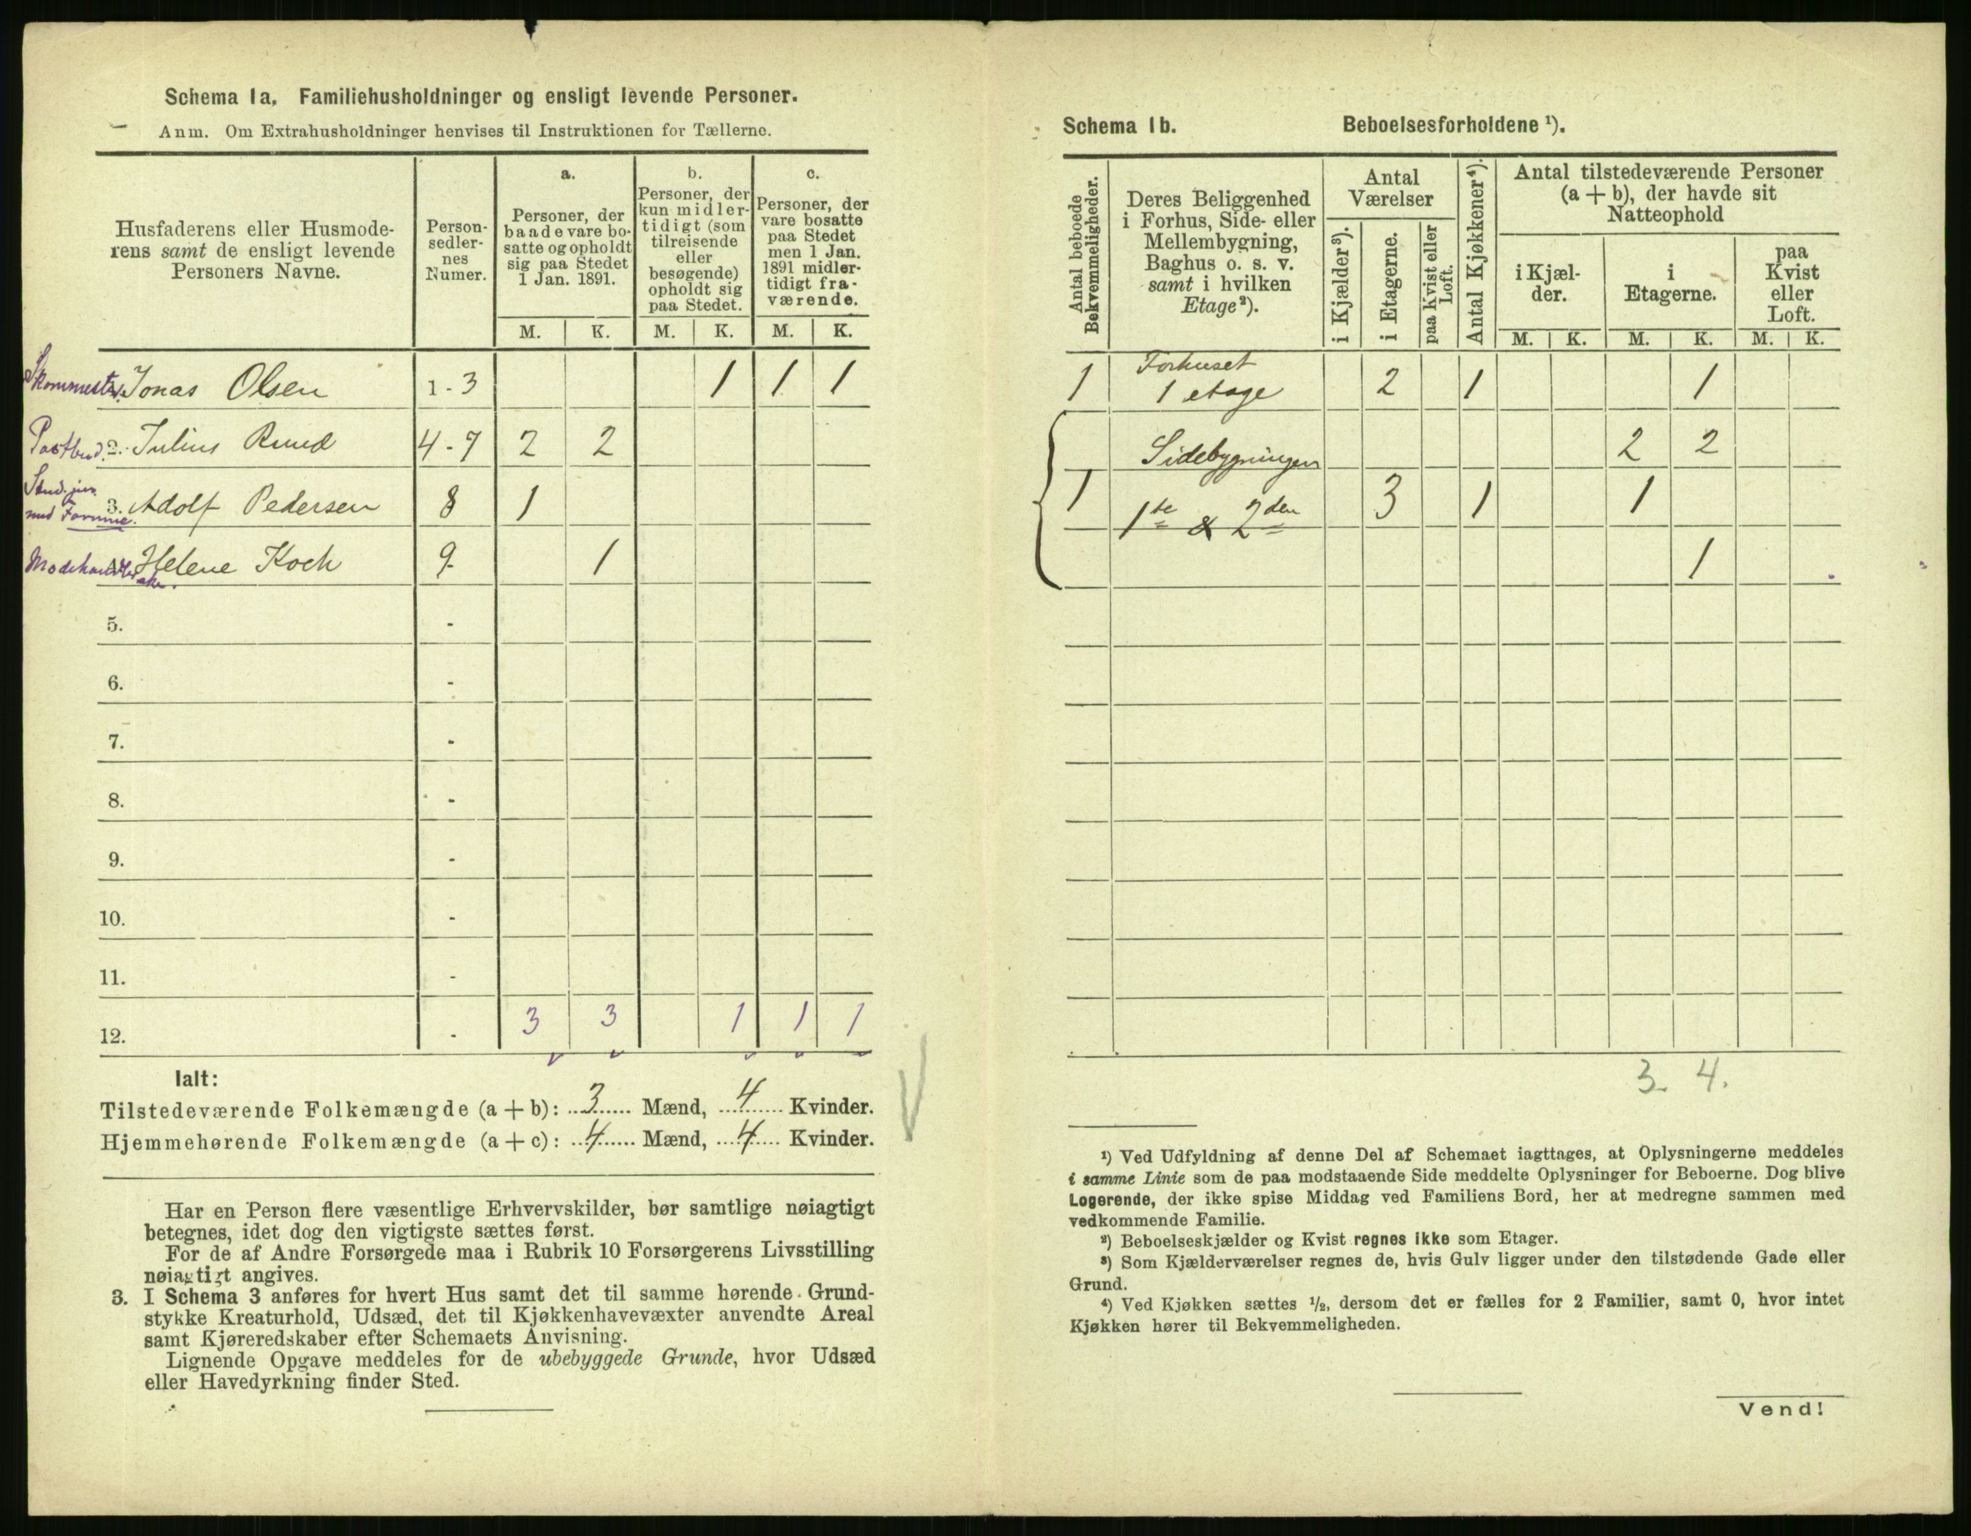 Schema 1a. Familiehusholdninger og ensligt levende Personer.
Anm. Om Extrahusholdninger henvises til Instruktionen for Tællerne.
Husfaderens eller Husmode-
rens samt de ensligt levende
Personers Navne.
Person-
sedler-
nes
Numer.
a.
Personer, der
baade vare bo-
satte og opholdt
sig paa Stedet
1 Jan. 1891.
b.
Personer, der
kun midler-
tidigt (som
tilreisende
eller
besøgende)
opholdt sig
paa Stedet.
c.
Personer, der
vare bosatte
paa Stedet
men 1 Jan.
1891 midler-
tidigt fra-
værende.
M. K. M. K. M. K.
Jonas Olsen 1-3 1 1 1
Postbud. 2. Julius Ruud 4-7 2 2
3. Adolf Pedersen 8 1
med Formue.
Helene Koch 9- 1
5. -
6. -
7. -
8. -
9. -
10. -
11. -
12. - 3 3 1 1 1
Ialt:
Tilstedeværende Folkemængde (a+b): 3 Mænd, 4 Kvinder.
Hjemmehørende Folkemængde (a+c): 4 Mænd, 4 Kvinder.
Har en Person flere væsentlige Erhvervskilder, bør samtlige nøiagtigt
betegnes, idet dog den vigtigste sættes først.
For de af Andre Forsørgede maa i Rubrik 10 Forsørgerens Livsstilling
nøiagtigt angives.
3. I Schema 3 anføres for hvert Hus samt det til samme hørende Grund-
stykke Kreaturhold, Udsæd, det til Kjøkkenhavevæxter anvendte Areal
samt Kjøreredskaber efter Schemaets Anvisning.
Lignende Opgave meddeles for de ubebyggede Grunde, hvor Udsæd
eller Havedyrkning finder Sted.
Schema 1b. Beboelsesforholdene ¹).
Antal beboede
Bekvemmeligheder.
Deres Beliggenhed
i Forhus, Side- eller
Mellembygning,
Baghus o. s. v.
samt i hvilken
Etage²).
Antal
Værelser
i Kjælder³).
i Etagerne.
paa Kvist eller
Loft.
Antal Kjøkkener⁴).
Antal tilstedeværende Personer
(a + b), der havde sit
Natteophold
i Kjæl-
der.
i
Etagerne.
paa
Kvist
eller
Loft.
M. K. M. K. M. K.
1 Forhuset
1 etage 2 1 1
Sidebygningen 2 2
1 1ste & 2den 3 1 1
1
3. 4.
¹) Ved Udfyldning af denne Del af Schemaet iagttages, at Oplysningerne meddeles
i samme Linie som de paa modstaaende Side meddelte Oplysninger for Beboerne. Dog blive
Logerende, der ikke spise Middag ved Familiens Bord, her at medregne sammen med
vedkommende Familie.
²) Beboelseskjælder og Kvist regnes ikke som Etager.
³) Som Kjælderværelser regnes de, hvis Gulv ligger under den tilstødende Gade eller
Grund.
⁴) Ved Kjøkken sættes ½, dersom det er fælles for 2 Familier, samt 0, hvor intet
Kjøkken hører til Bekvemmeligheden.
Vend!